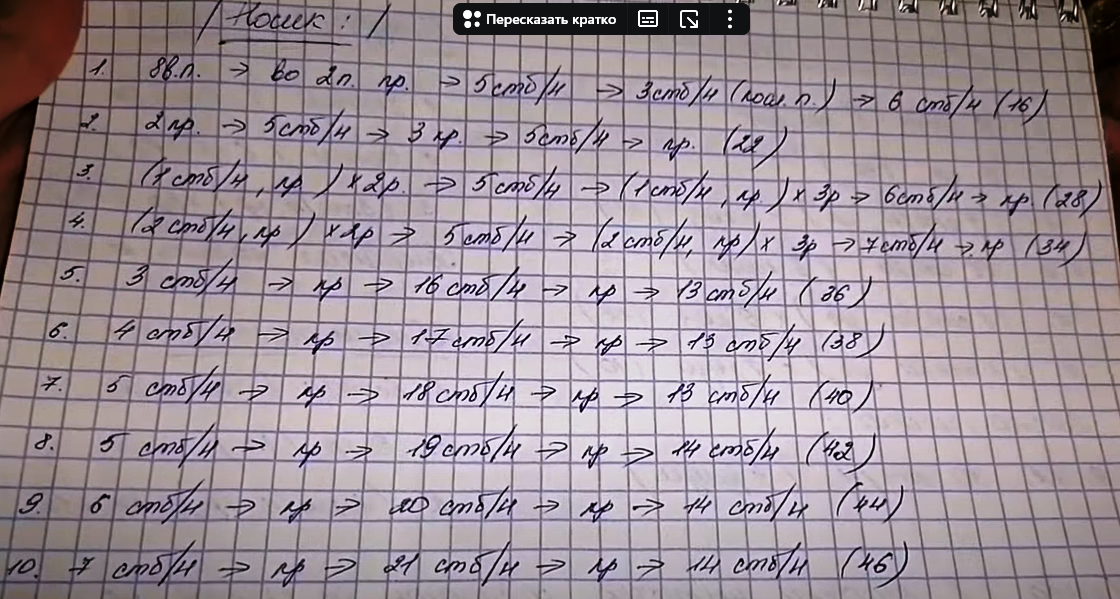 Пересказать кратко
Носик:
1. 8в.п. → во 2п. пр. → 5стб/н → 3стб/н (посл.п.) → 6 стб/н (16)
2. 2пр. → 5стб/н → 3 пр. → 5стб/н → пр. (22)
3. (1стб/н, пр.) × 2р. → 5стб/н → (1стб/н, пр.) × 3р → 6стб/н → пр. (28)
4. (2стб/н, пр) × 2р → 5стб/н → (2стб/н, пр) × 3р → 7стб/н → пр (34)
5. 3 стб/н → пр → 16стб/н → пр → 13стб/н (36)
6. 4 стб/н → пр → 17стб/н → пр → 13 стб/н (38)
7. 5 стб/н → пр → 18стб/н → пр → 13 стб/н (40)
8. 5 стб/н → пр → 19стб/н → пр → 14 стб/н (42)
9. 6 стб/н → пр → 20 стб/н → пр → 14 стб/н (44)
10. 7 стб/н → пр → 21 стб/н → пр → 14 стб/н (46)